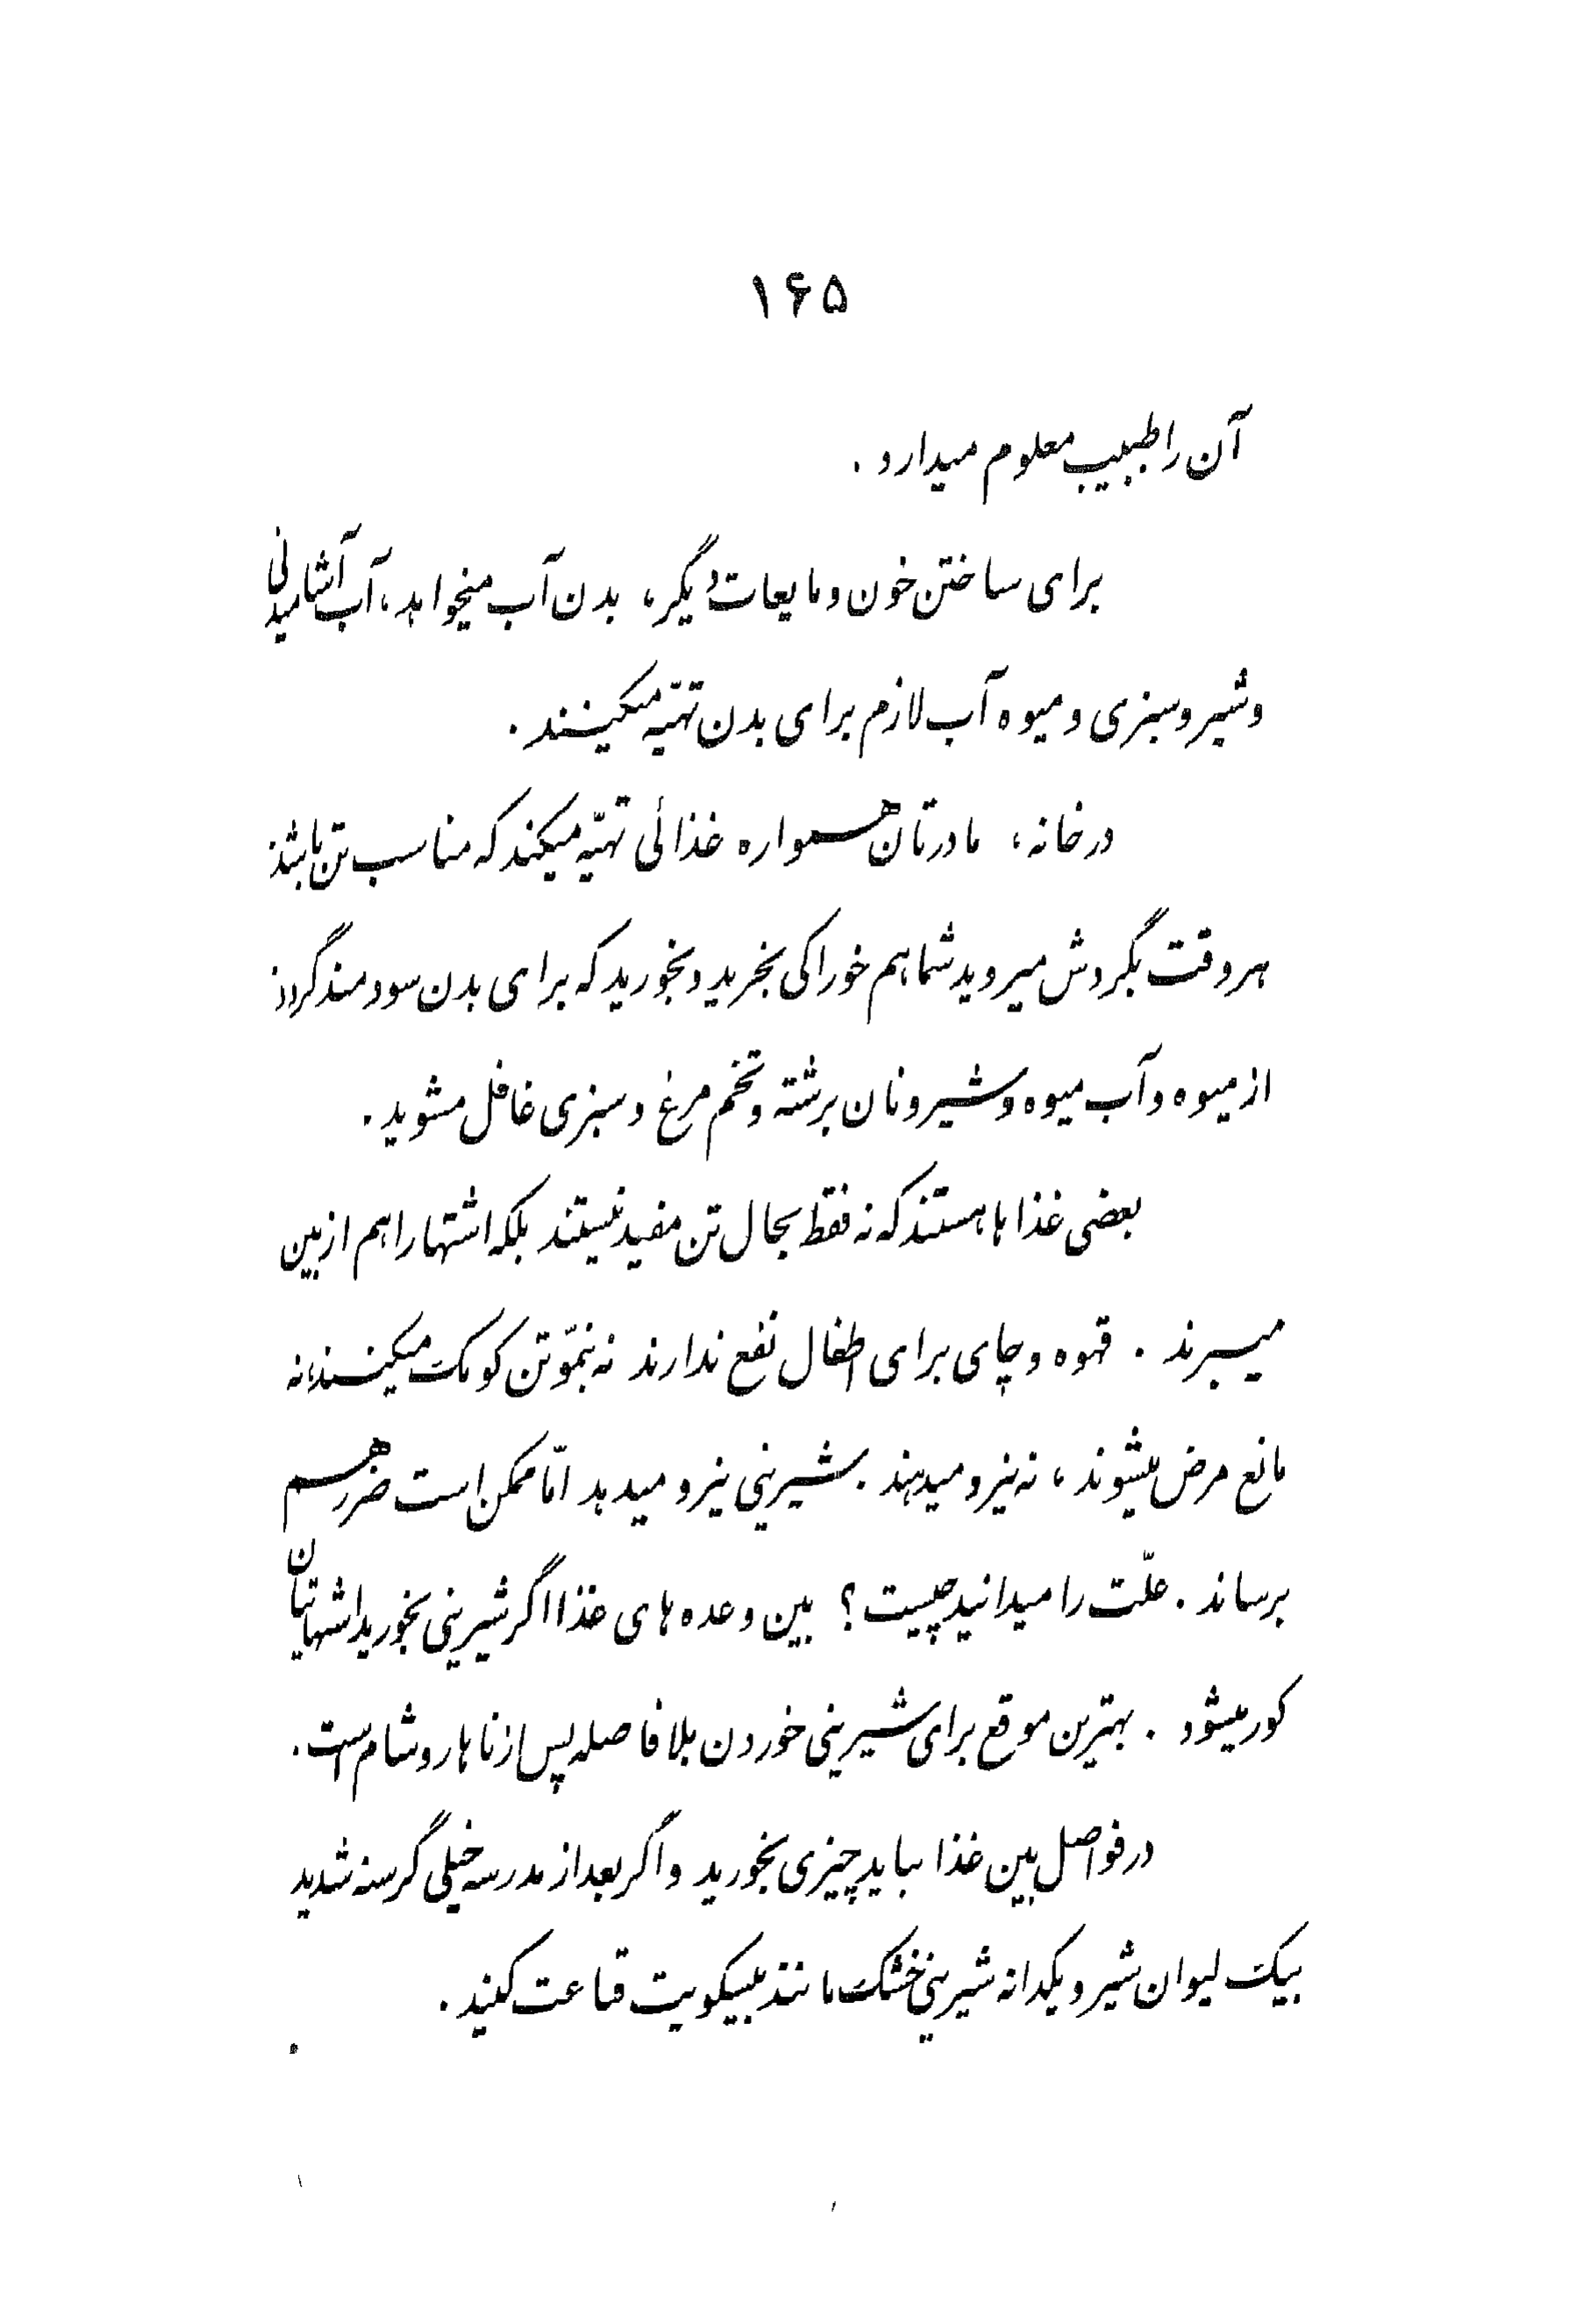 ۱۶۵
آن را طبیب معلوم میدارد.
برای ساختن خون و مایعات دیگر، بدن آب میخواهد، آب آشامیدنی
و شیر و سبزی و میوه آب لازم برای بدن تهیّه میکنند.
در خانه، مادرتان همواره غذائی تهیّه میکند که مناسب تن باشد.
هر وقت بگردش میروید شما هم خوراکی بخرید و بخورید که برای بدن سودمند گردد.
از میوه و آب میوه و شیر و نان برشته و تخم مرغ و سبزی غافل مشوید.
بعضی غذاها هستند که نه فقط بحال تن مفید نیستند بلکه اشتها را هم از بین
میبرند. قهوه و چای برای اطفال نفع ندارند نه بنموّ تن کومک میکنند، نه
مانع مرض میشوند، نه نیرو میدهند. شیرینی نیرو میدهد امّا ممکن است ضرر هم
برساند. علّت را میدانید چیست؟ بین وعده های غذا اگر شیرینی بخورید اشتهایتان
کور میشود. بهترین موقع برای شیرینی خوردن بلافاصله پس از ناهار و شام است.
در فواصل بین غذا نباید چیزی بخورید و اگر بعد از مدرسه خیلی گرسنه شدید
بیک لیوان شیر و یکدانه شیرینی خشک مانند بیسکویت قناعت کنید.